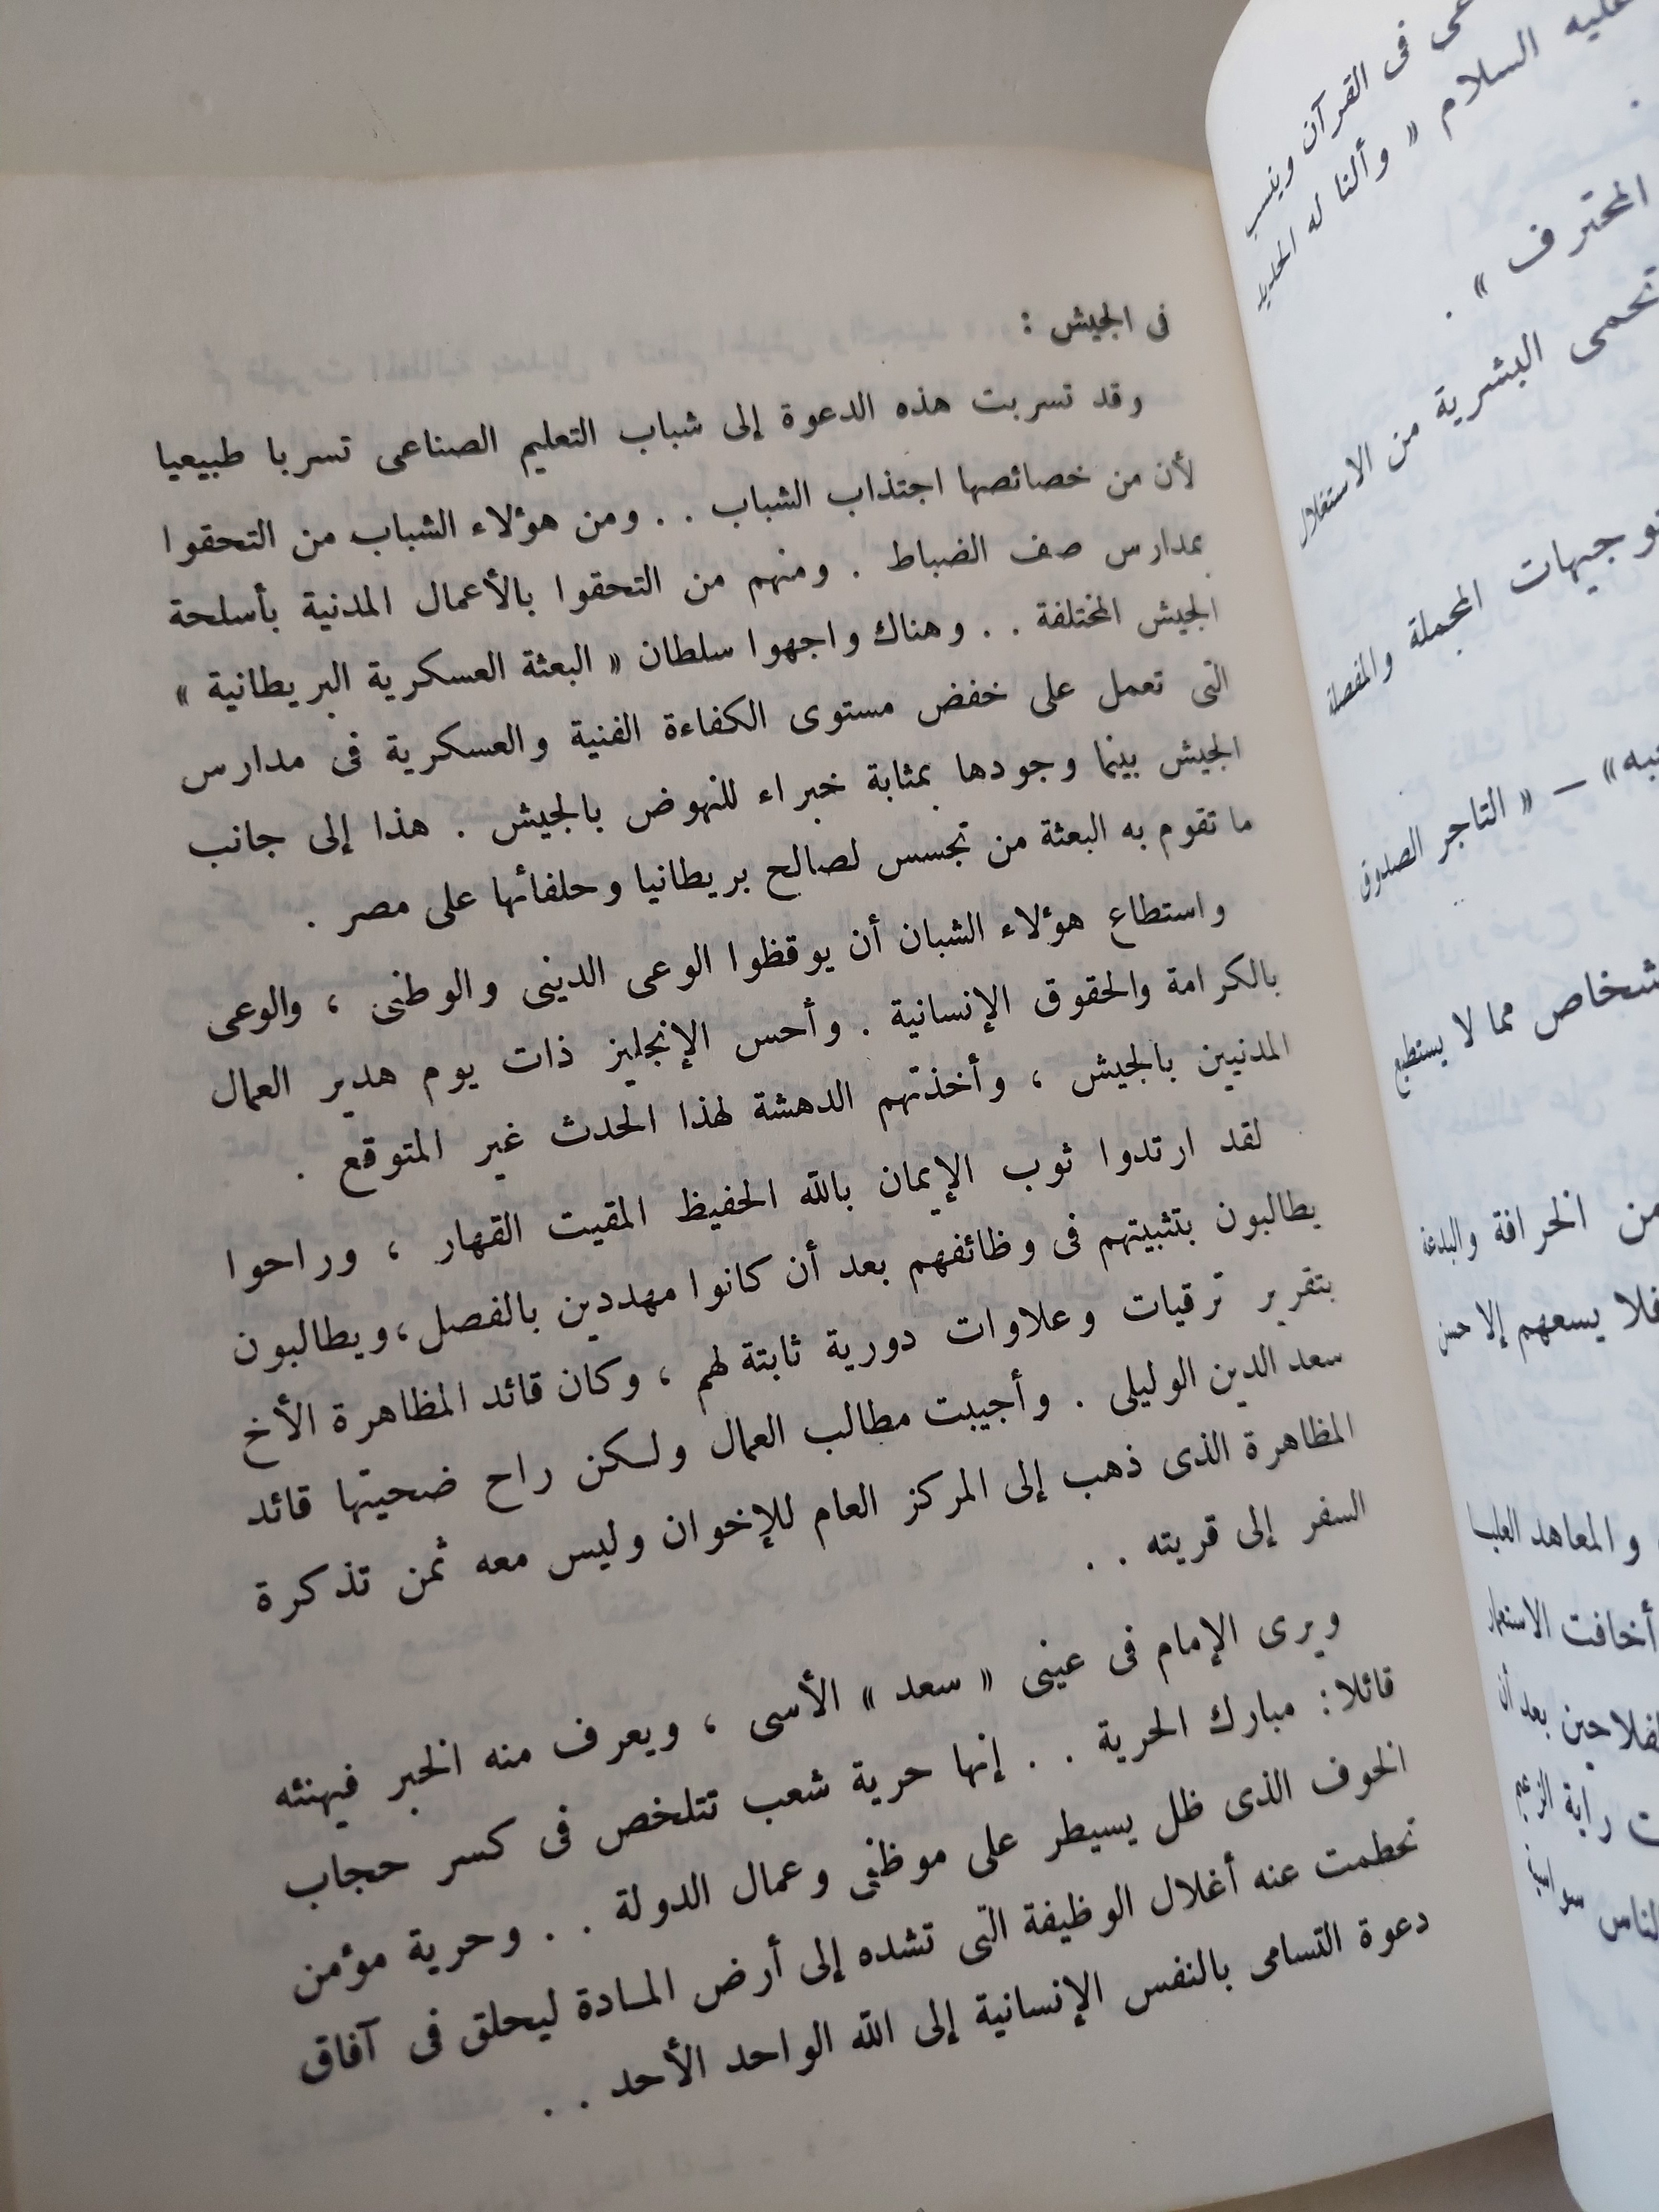 فى الجيش :
وقد تسربت هذه الدعوة إلى شباب التعليم الصناعى تسربا طبيعيا
لأن من خصائصها اجتذاب الشباب . . ومن هؤلاء الشباب من التحقوا
بمدارس صف الضباط . ومنهم من التحقوا بالأعمال المدنية بأسلحة
الجيش المختلفة . . وهناك واجهوا سلطان « البعثة العسكرية البريطانية »
التى تعمل على خفض مستوى الكفاءة الفنية والعسكرية فى مدارس
الجيش بينما وجودها بمثابة خبراء للنهوض بالجيش . هذا إلى جانب
ما تقوم به البعثة من تجسس لصالح بريطانيا وحلفائها على مصر .
واستطاع هؤلاء الشبان أن يوقظوا الوعى الدينى والوطنى ، والوعى
بالكرامة والحقوق الإنسانية . وأحس الإنجليز ذات يوم هدير العمال
المدنيين بالجيش ، وأخذتهم الدهشة لهذا الحدث غير المتوقع .
لقد ارتدوا ثوب الإيمان بالله الحفيظ المقيت القهار ، وراحوا
يطالبون بتثبيتهم فى وظائفهم بعد أن كانوا مهددين بالفصل، ويطالبون
بتقرير ترقيات وعلاوات دورية ثابتة لهم ، وكان قائد المظاهرة الأخ
سعد الدين الوليلى . وأجيبت مطالب العمال ولكن راح ضحيتها قائد
المظاهرة الذى ذهب إلى المركز العام للإخوان وليس معه ثمن تذكرة
السفر إلى قريته . .
ويرى الإمام فى عينى « سعد » الأسى ، ويعرف منه الخبر فيهنئه
قائلا: مبارك الحرية . . إنها حرية شعب تتلخص فى كسر حجاب
الخوف الذى ظل يسيطر على موظفى وعمال الدولة . . وحرية مؤمن
تحطمت عنه أغلال الوظيفة التى تشده إلى أرض المادة ليحلق فى آفاق
دعوة التسامى بالنفس الإنسانية إلى الله الواحد الأحد . .
فى القرآن
عليه السلام « وألنا له الحديد
المحترف » .
تحمى البشرية من الاستغلال
توجيهات المجملة والمفصلة
— « التاجر الصدوق
مما لا يستطيع
من الخرافة والبدعة
فلا يسعهم إلا حسن
والمعاهد العليا
أخافت الاستعمار
بعد أن
راية الزعيم